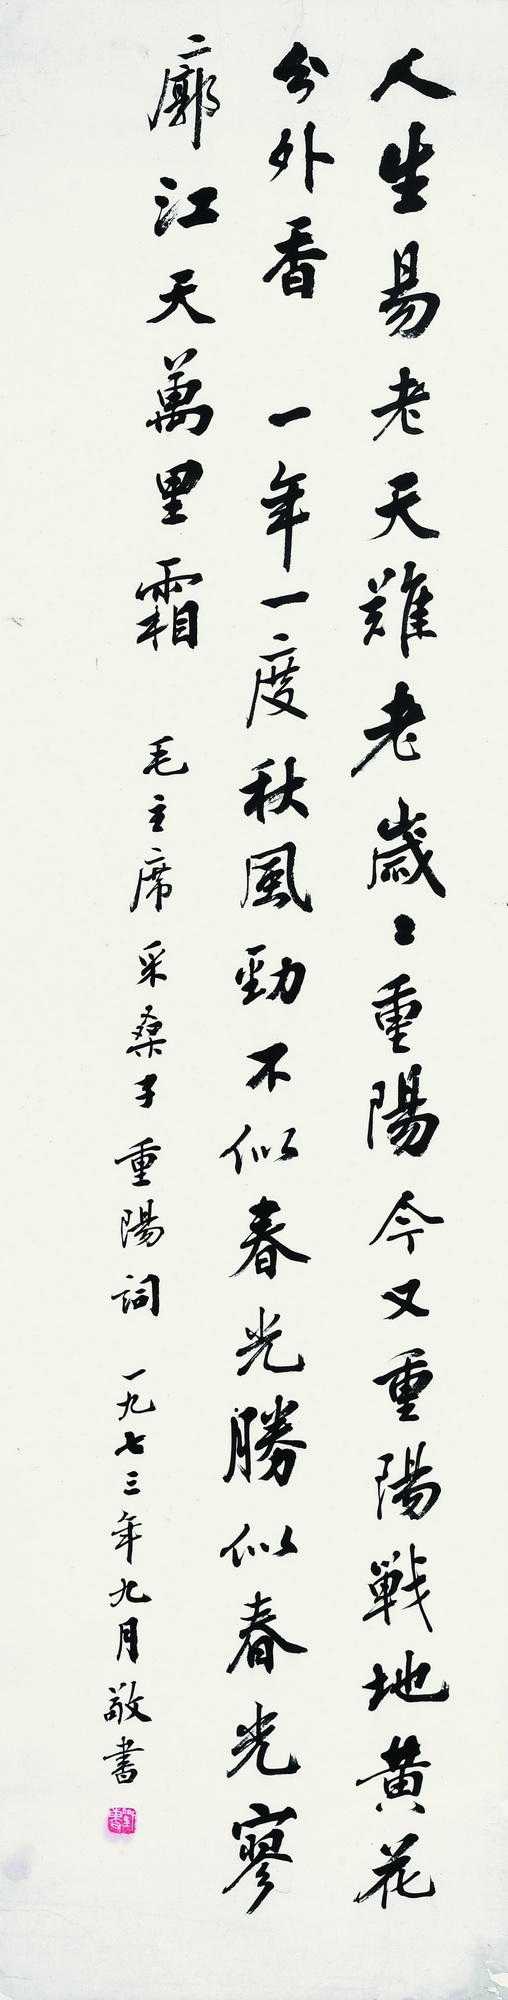 人生易老天難老歲々重陽今又重陽戰地黃花
分外香 一年一度秋風勁不似春光勝似春光寥
廓江天萬里霜 毛主席采桑子重陽詞 一九七三年九月敬書